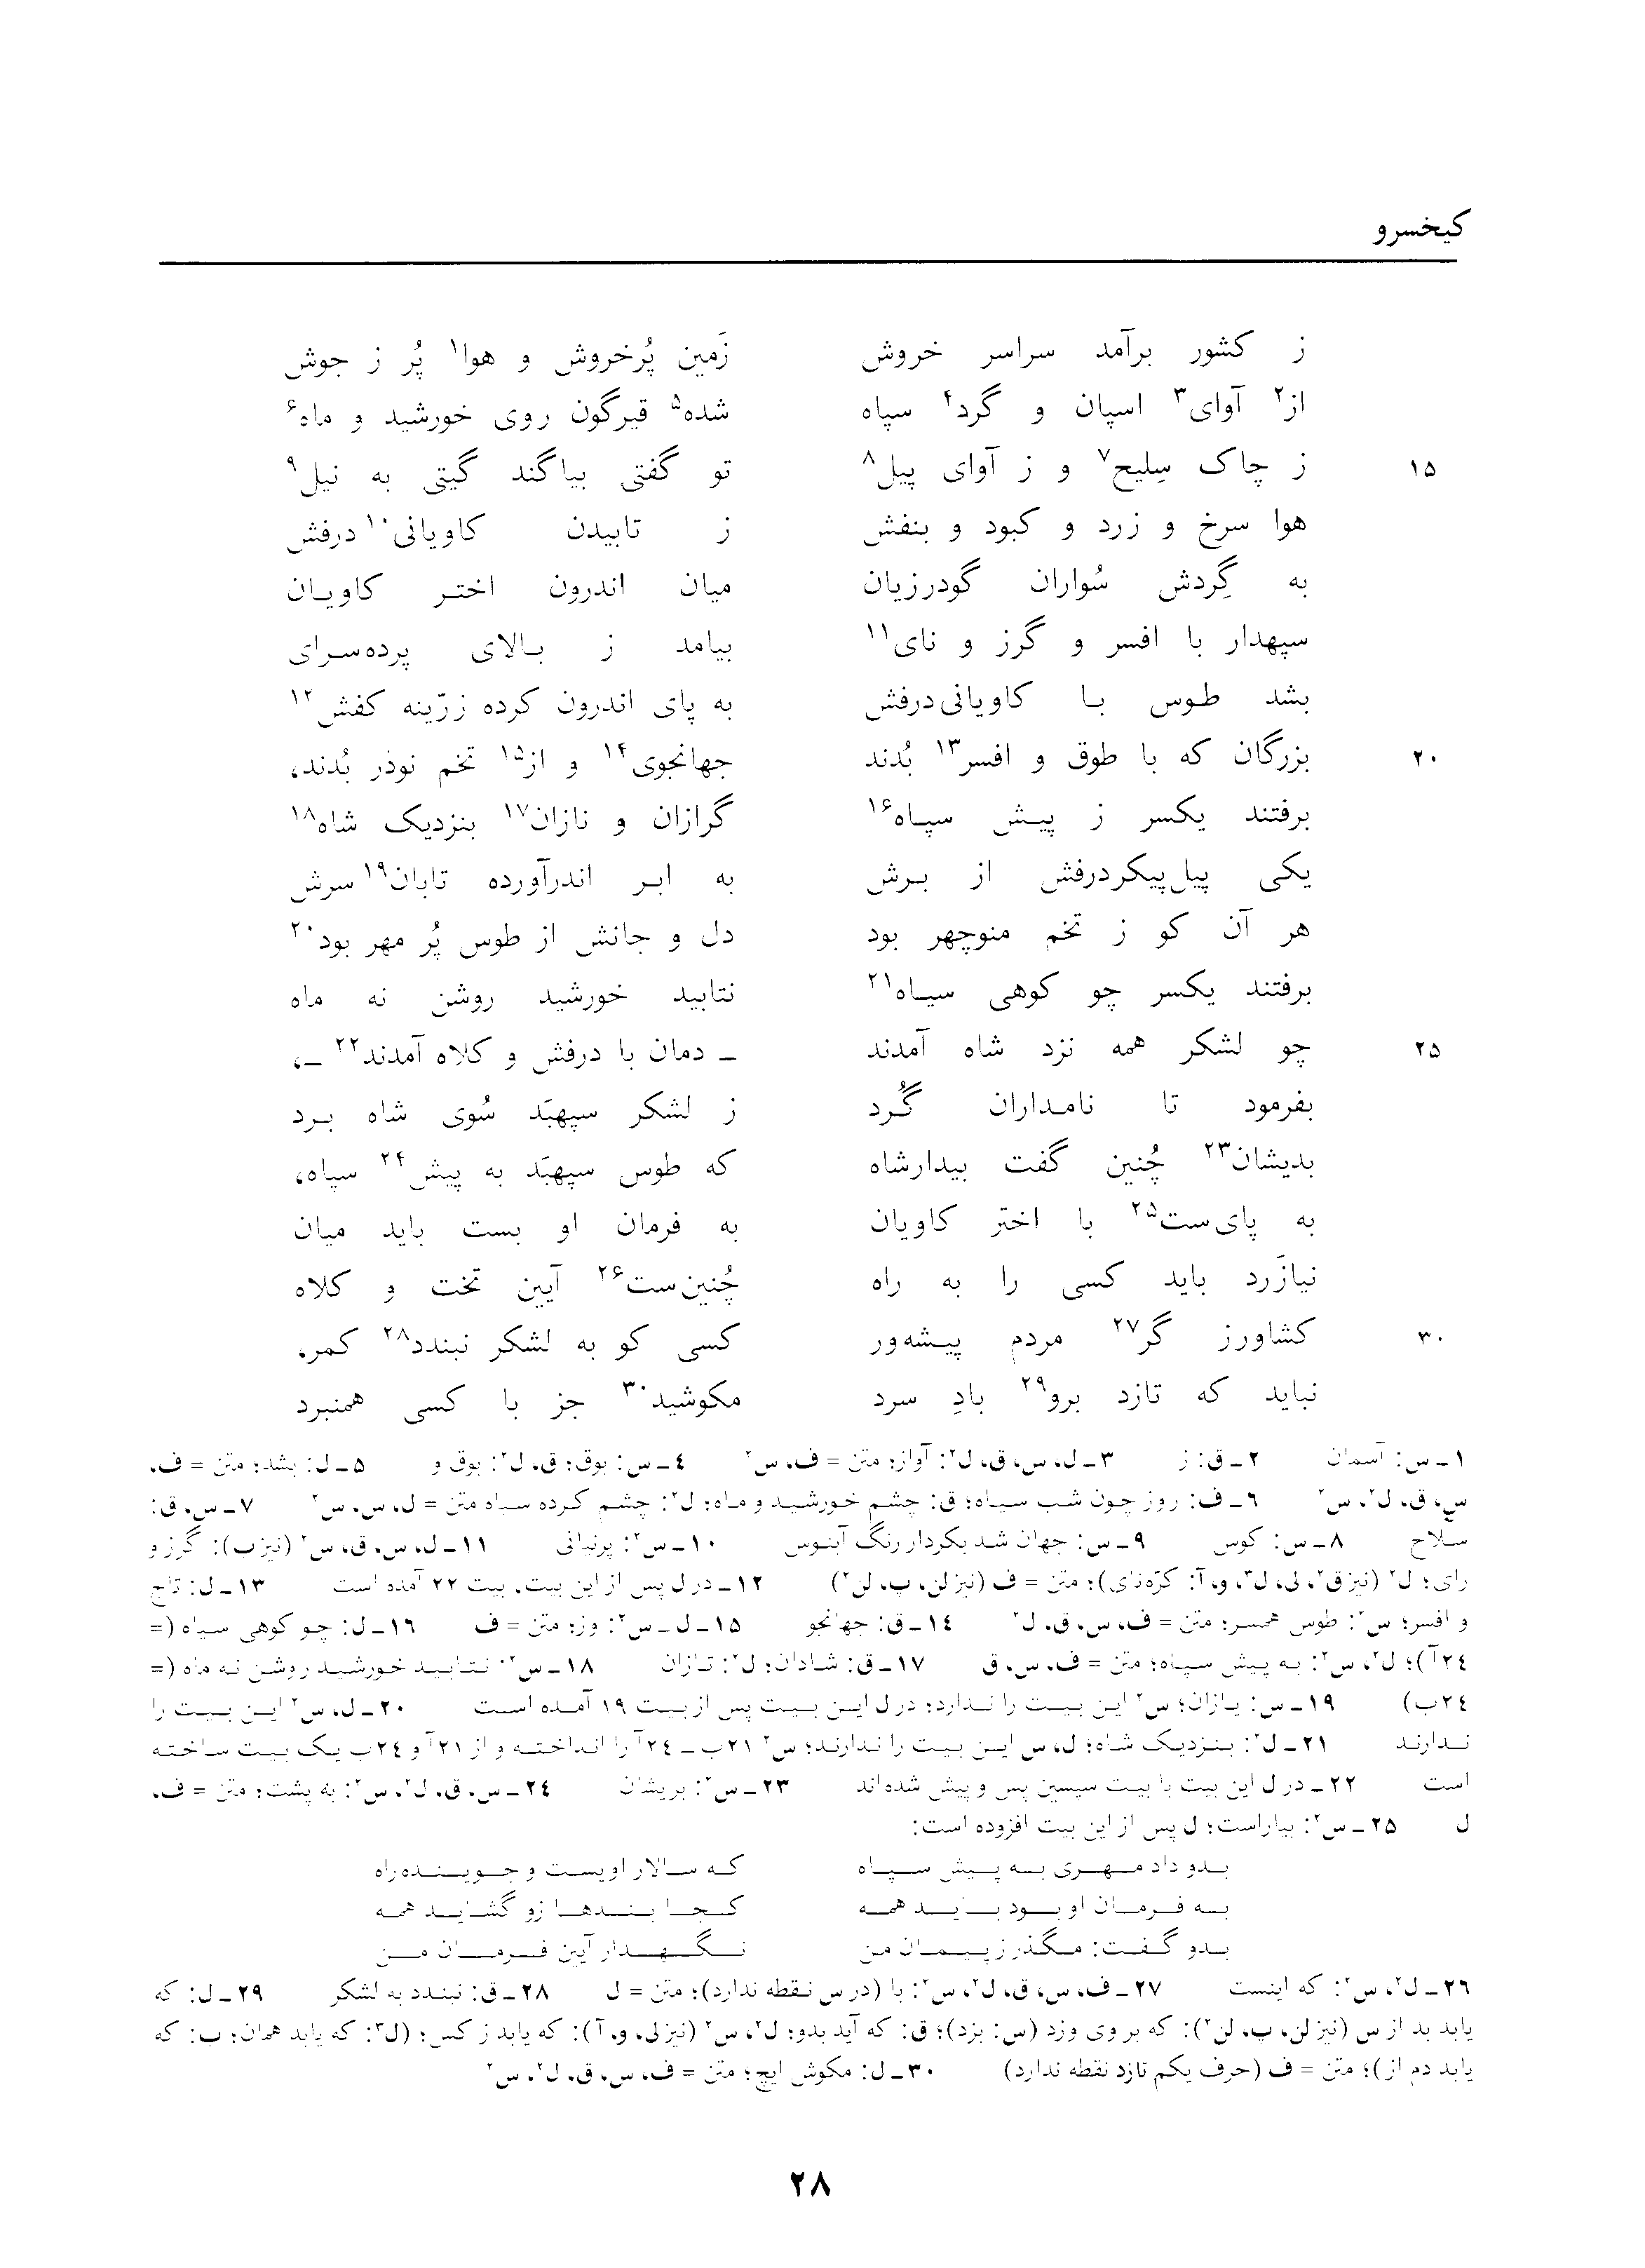 کیخسرو
ز کشور برآمد سراسر خروش زَمین پُرخروش و هوا۱ پُر ز جوش
از۲ آوای۳ اسپان و گرد۴ سپاه شده۵ قیرگون روی خورشید و ماه۶
۱۵ ز چاک سِلیح۷ و ز آوای پیل۸ تو گفتی بیاگند گیتی به نیل۹
هوا سرخ و زرد و کبود و بنفش ز تابیدن کاویانی۱۰ درفش
به گِردش سُواران گودرزیان میان اندرون اختر کاویان
سپهدار با افسر و گرز و نای۱۱ بیامد ز بالای پرده‌سرای
بشد طوس با کاویانی‌درفش به پای اندرون کرده زرّینه کفش۱۲
۲۰ بزرگان که با طوق و افسر۱۳ بُدند جهانجوی۱۴ و از۱۵ تخم نوذر بُدند،
برفتند یکسر ز پیش سپاه۱۶ گرازان و نازان۱۷ بنزدیک شاه۱۸
یکی پیل‌پیکردرفش از برش به ابر اندرآورده تابان۱۹ سرش
هر آن کو ز تخم منوچهر بود دل و جانش از طوس پُر مهر بود۲۰
برفتند یکسر چو کوهی سیاه۲۱ نتابید خورشید روشن نه ماه
۲۵ چو لشکر همه نزد شاه آمدند ـ دمان با درفش و کلاه آمدند۲۲ ـ،
بفرمود تا نامداران گُرد ز لشکر سپهبَد سُوی شاه برد
بدیشان۲۳ چُنین گفت بیدارشاه که طوس سپهبَد به پیش۲۴ سپاه،
به پای‌ست۲۵ با اختر کاویان به فرمان او بست باید میان
نیازَرد باید کسی را به راه چُنین‌ست۲۶ آیین تخت و کلاه
۳۰ کشاورز گر۲۷ مردمِ پیشه‌ور کسی کو به لشکر نبندد۲۸ کمر،
نباید که تازد برو۲۹ بادِ سرد مکوشید۳۰ جز با کسی همنبرد
۱ـ س: آسمان ۲ـ ق: ز ۳ـ ل، س، ق، ل۲: آواز؛ متن = ف، س۲ ۴ـ س: بوق؛ ق، ل۲: بوق و ۵ـ ل: بشد؛ متن = ف،
س، ق، ل۲، س۲ ۶ـ ف: روز چون شب سیاه؛ ق: چشم خورشید و ماه؛ ل۲: چشم کرده سیاه متن = ل، س، س۲ ۷ـ س، ق:
سلاح ۸ـ س: کوس ۹ـ س: جهان شد بکردار رنگ آبنوس ۱۰ـ س۲: پرنیانی ۱۱ـ ل، س، ق، س۲ (نیز ب): گرز و
رای؛ ل۲ (نیز ق۲، لی، ل۳، و، آ: کرّه‌نای)؛ متن = ف (نیز لن، پ، لن۲) ۱۲ـ در ل پس از این بیت، بیت ۲۲ آمده است ۱۳ـ ل: تاج
و افسر؛ س۲: طوس همسر؛ متن = ف، س، ق، ل۲ ۱۴ـ ق: جهانجو ۱۵ـ ل ـ س۲: وز؛ متن = ف ۱۶ـ ل: چو کوهی سیاه (=
۲۴آ)؛ ل۲، س۲: به پیش سپاه؛ متن = ف، س، ق ۱۷ـ ق: شادان؛ ل۲: تازان ۱۸ـ س۲: نتابید خورشید روشن نه ماه (=
۲۴ب) ۱۹ـ س: یازان؛ س۲ این بیت را ندارد؛ در ل این بیت پس از بیت ۱۹ آمده است ۲۰ـ ل، س۲ این بیت را
ندارند ۲۱ـ ل۲: بنزدیک شاه؛ ل، س این بیت را ندارند؛ س۲ ۲۱ب ـ ۲۴آ را انداخته و از ۲۱آ و ۲۴ب یک بیت ساخته
است ۲۲ـ در ل این بیت با بیت سپسین پس و پیش شده‌اند ۲۳ـ س۲: بریشان ۲۴ـ س، ق، ل۲، س۲: به پشت؛ متن = ف،
ل ۲۵ـ س۲: بیاراست؛ ل پس از این بیت افزوده است:
بدو داد مهری به پیش سپاه که سالار اویست و جوینده راه
به فرمان او بود باید همه کجا بندها زو گشاید همه
بدو گفت: مگذر ز پیمان من نگهدار آیین فرمان من
۲۶ـ ل۲، س۲: که اینست ۲۷ـ ف، س، ق، ل۲، س۲: با (در س نقطه ندارد)؛ متن = ل ۲۸ـ ق: نبندد به لشکر ۲۹ـ ل: که
یابد بد از س (نیز لن، پ، لن۲): که بر وی وزد (س: بزد)؛ ق: که آید بدو؛ ل۲، س۲ (نیز لی، و، آ): که یابد ز کس؛ (ل۳: که یابد همان؛ ب: که
یابد دم از)؛ متن = ف (حرف یکم تازد نقطه ندارد) ۳۰ـ ل: مکوش ایچ؛ متن = ف، س، ق، ل۲، س۲
۲۸